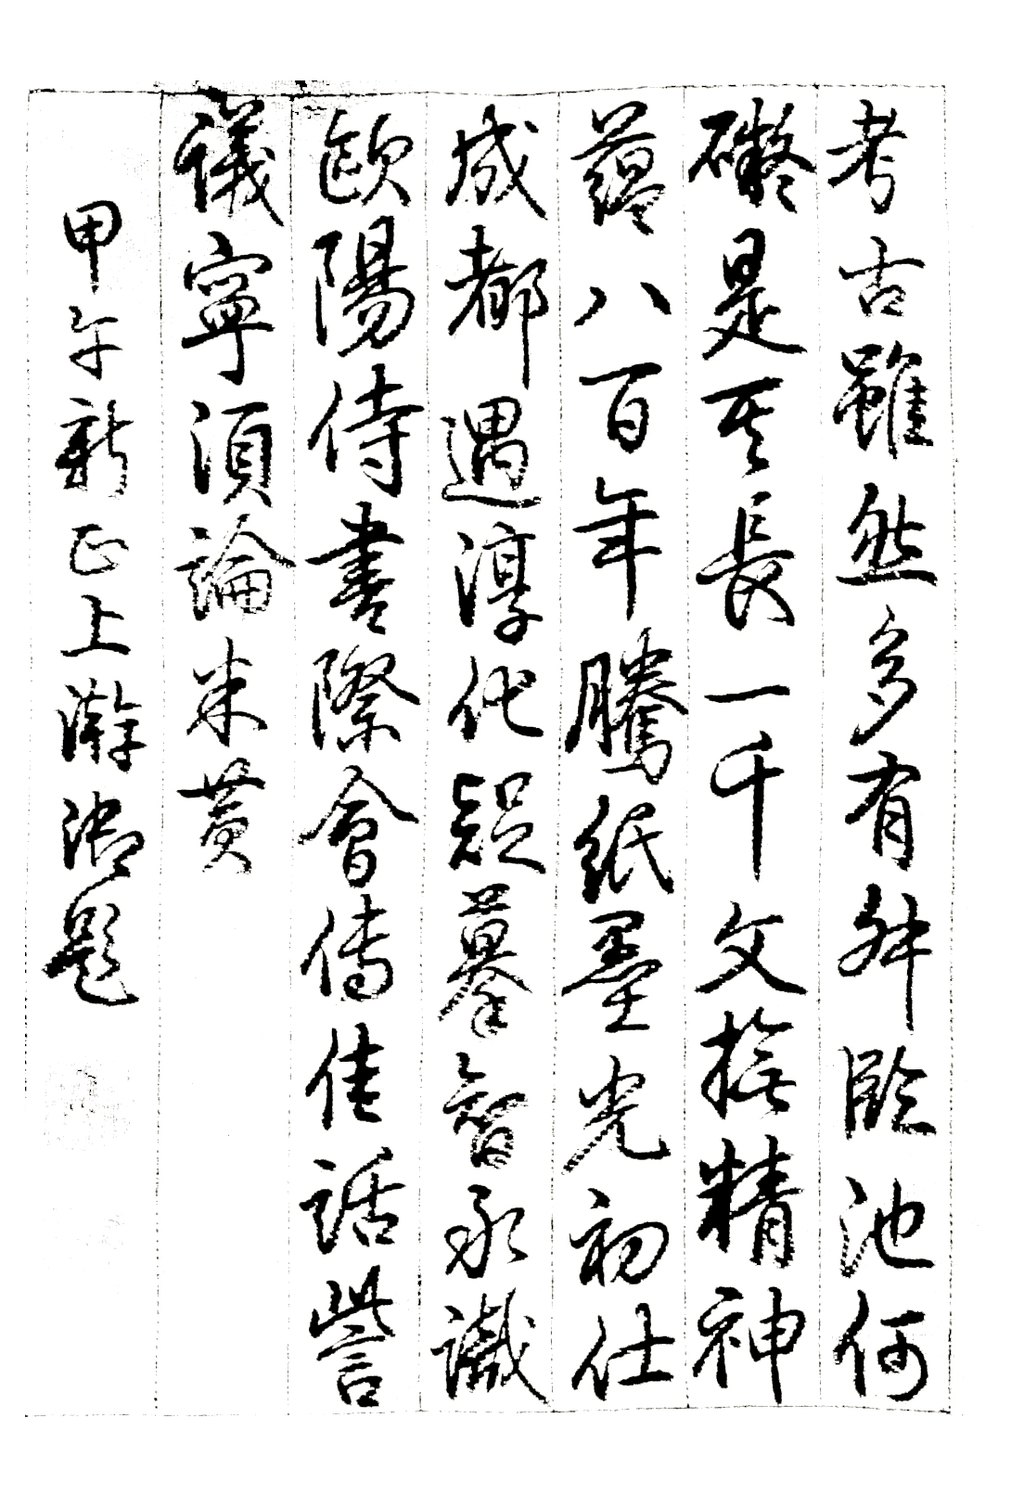 考古雖然多有舛臨池何
礙是其長一千文撫精神
蘊八百年騰紙墨光初仕
成都遇淳化疑摹智永識
歐陽侍書際會傳佳話訾
議寧須論米黄
甲午新正上澣御題